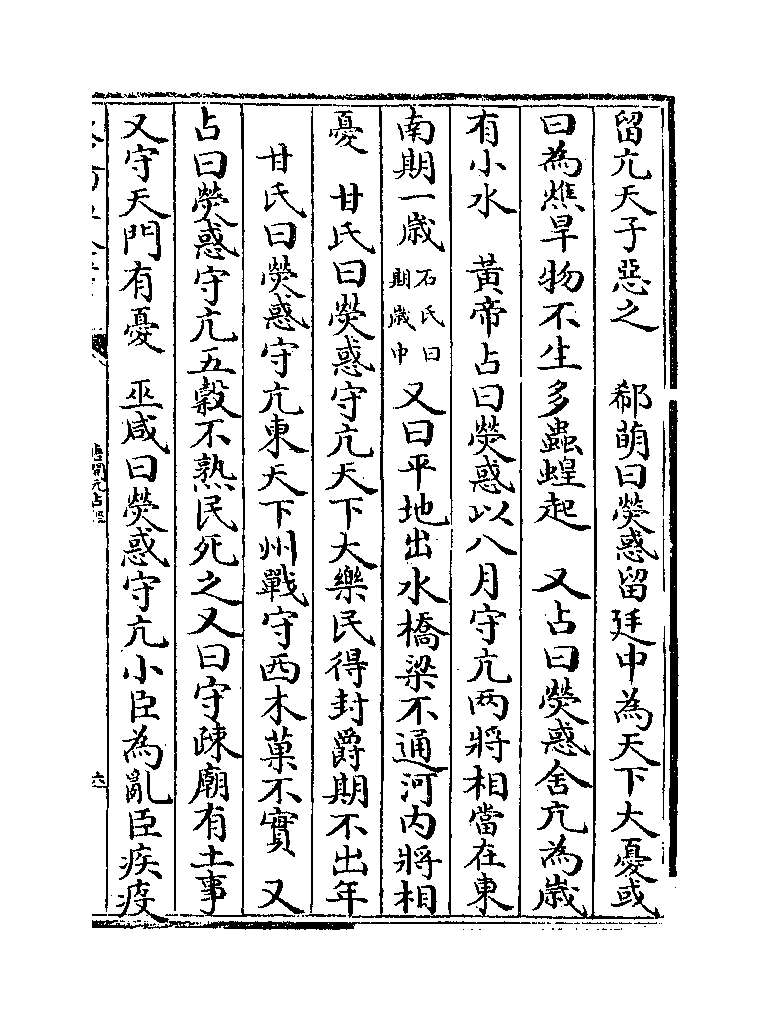 留亢天子惡之　郗萌曰熒惑留廷中為天下大憂或
曰為燋旱物不生多蟲蝗起　又占曰熒惑舍亢為歳
有小水　黃帝占曰熒惑以八月守亢两將相當在東
南期一歳石氏曰期歳中又曰平地出水橋梁不通河内將相
憂　甘氏曰熒惑守亢天下大樂民得封爵期不出年
甘氏曰熒惑守亢東天下州戰守西木菓不實　又
占曰熒惑守亢五穀不熟民死之又曰守疎廟有土事
又守天門有憂　巫咸曰熒惑守亢小臣為亂臣疾疫
唐開元占經
六